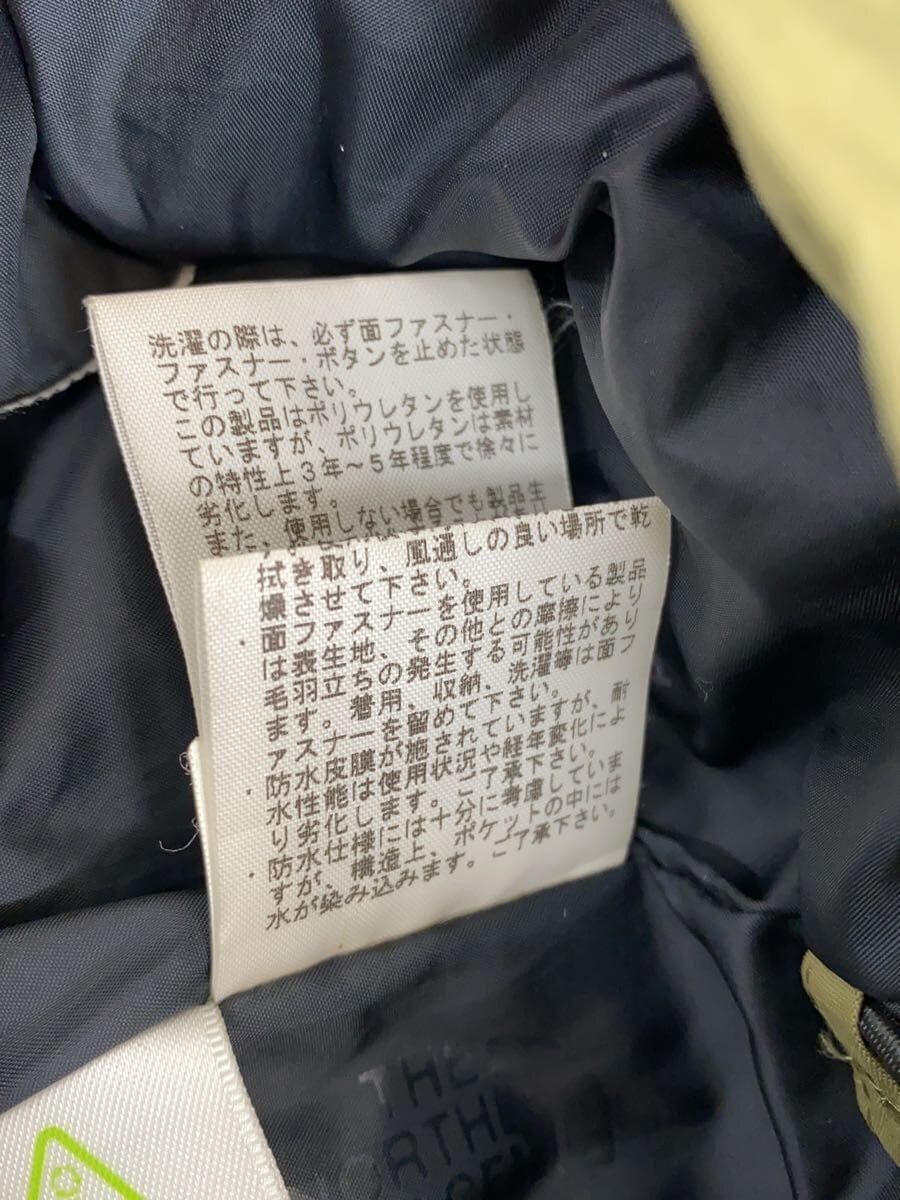 洗濯の際は、必ず面ファスナー・
ファスナー・ボタンを止めた状態
で行って下さい。
この製品はポリウレタンを使用し
ていますが、ポリウレタンは素材
の特性上3年～5年程度で徐々に
劣化します。
また、使用しない場合でも製品生
拭き取り、風通しの良い場所で乾
燥させて下さい。
・面ファスナーを使用している製品
は表生地、その他との摩擦により
毛羽立ちの発生する可能性があり
ます。着用、収納、洗濯等は面フ
ァスナーを留めて下さい。
・防水皮膜が施されていますが、耐
水性能は使用状況や経年変化によ
り劣化します。ご了承下さい。
・防水仕様には十分に考慮していま
すが、構造上、ポケットの中には
水が染み込みます。ご了承下さい。
THE